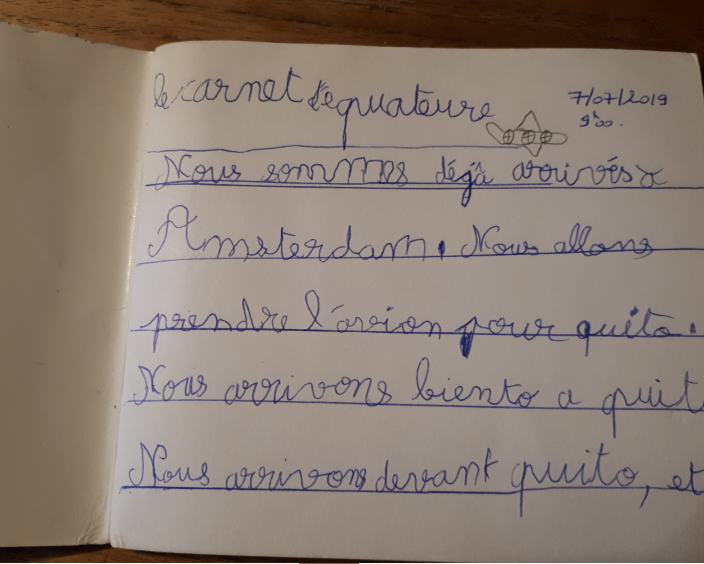 le carnet d'equateure
7/07/2019
9h00.
Nous sommes déjà arrivés a
Amsterdam. Nous allons
prendre l'avion pour quito.
Nous arrivons biento a quit
Nous arrivons devant quito, et